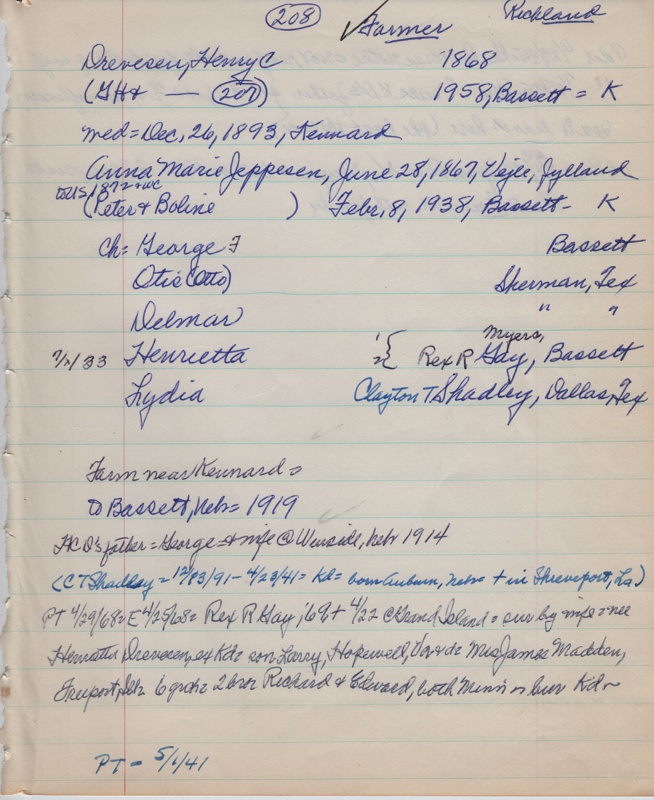 208 ✓ Farmer Richland
Drevesen, Henry C 1868
(GH+ — 207) 1958, Bassett = K
med = Dec, 26, 1893, Kennard
Anna Marie Jeppesen, June 28, 1867, Vejle, Jylland
to US, 1872 + WC
(Peter + Boline ) Febr, 8, 1938, Bassett - K
Ch = George F Bassett
Otis (Otto) Sherman, Tex
Delmar " "
Myers,
7/2/33 Henrietta Rex R Gay, Bassett
Lydia Clayton T Shadley, Dallas, Tex
Farm near Kennard =
to Bassett, Nebr = 1919
HCD's father = George = + wife @ Winside, Nebr 1914
(CT Shadley = 12/23/91 - 4/23/41 = Kd = born Auburn, Nebr + in Shreveport, La)
PT 4/29/68 = E 4/25/68 = Rex R Gay, '69 + 4/22 @ Grand Island = sur by wife = nee
Henrietta Drevesen, ex Kd = son Larry, Hopewell, Va + d = Mrs James Madden,
Freeport, Ills 6 grch = 2 bros Richard + Edward, both Minn = bur Kd -
PT - 5/1/41